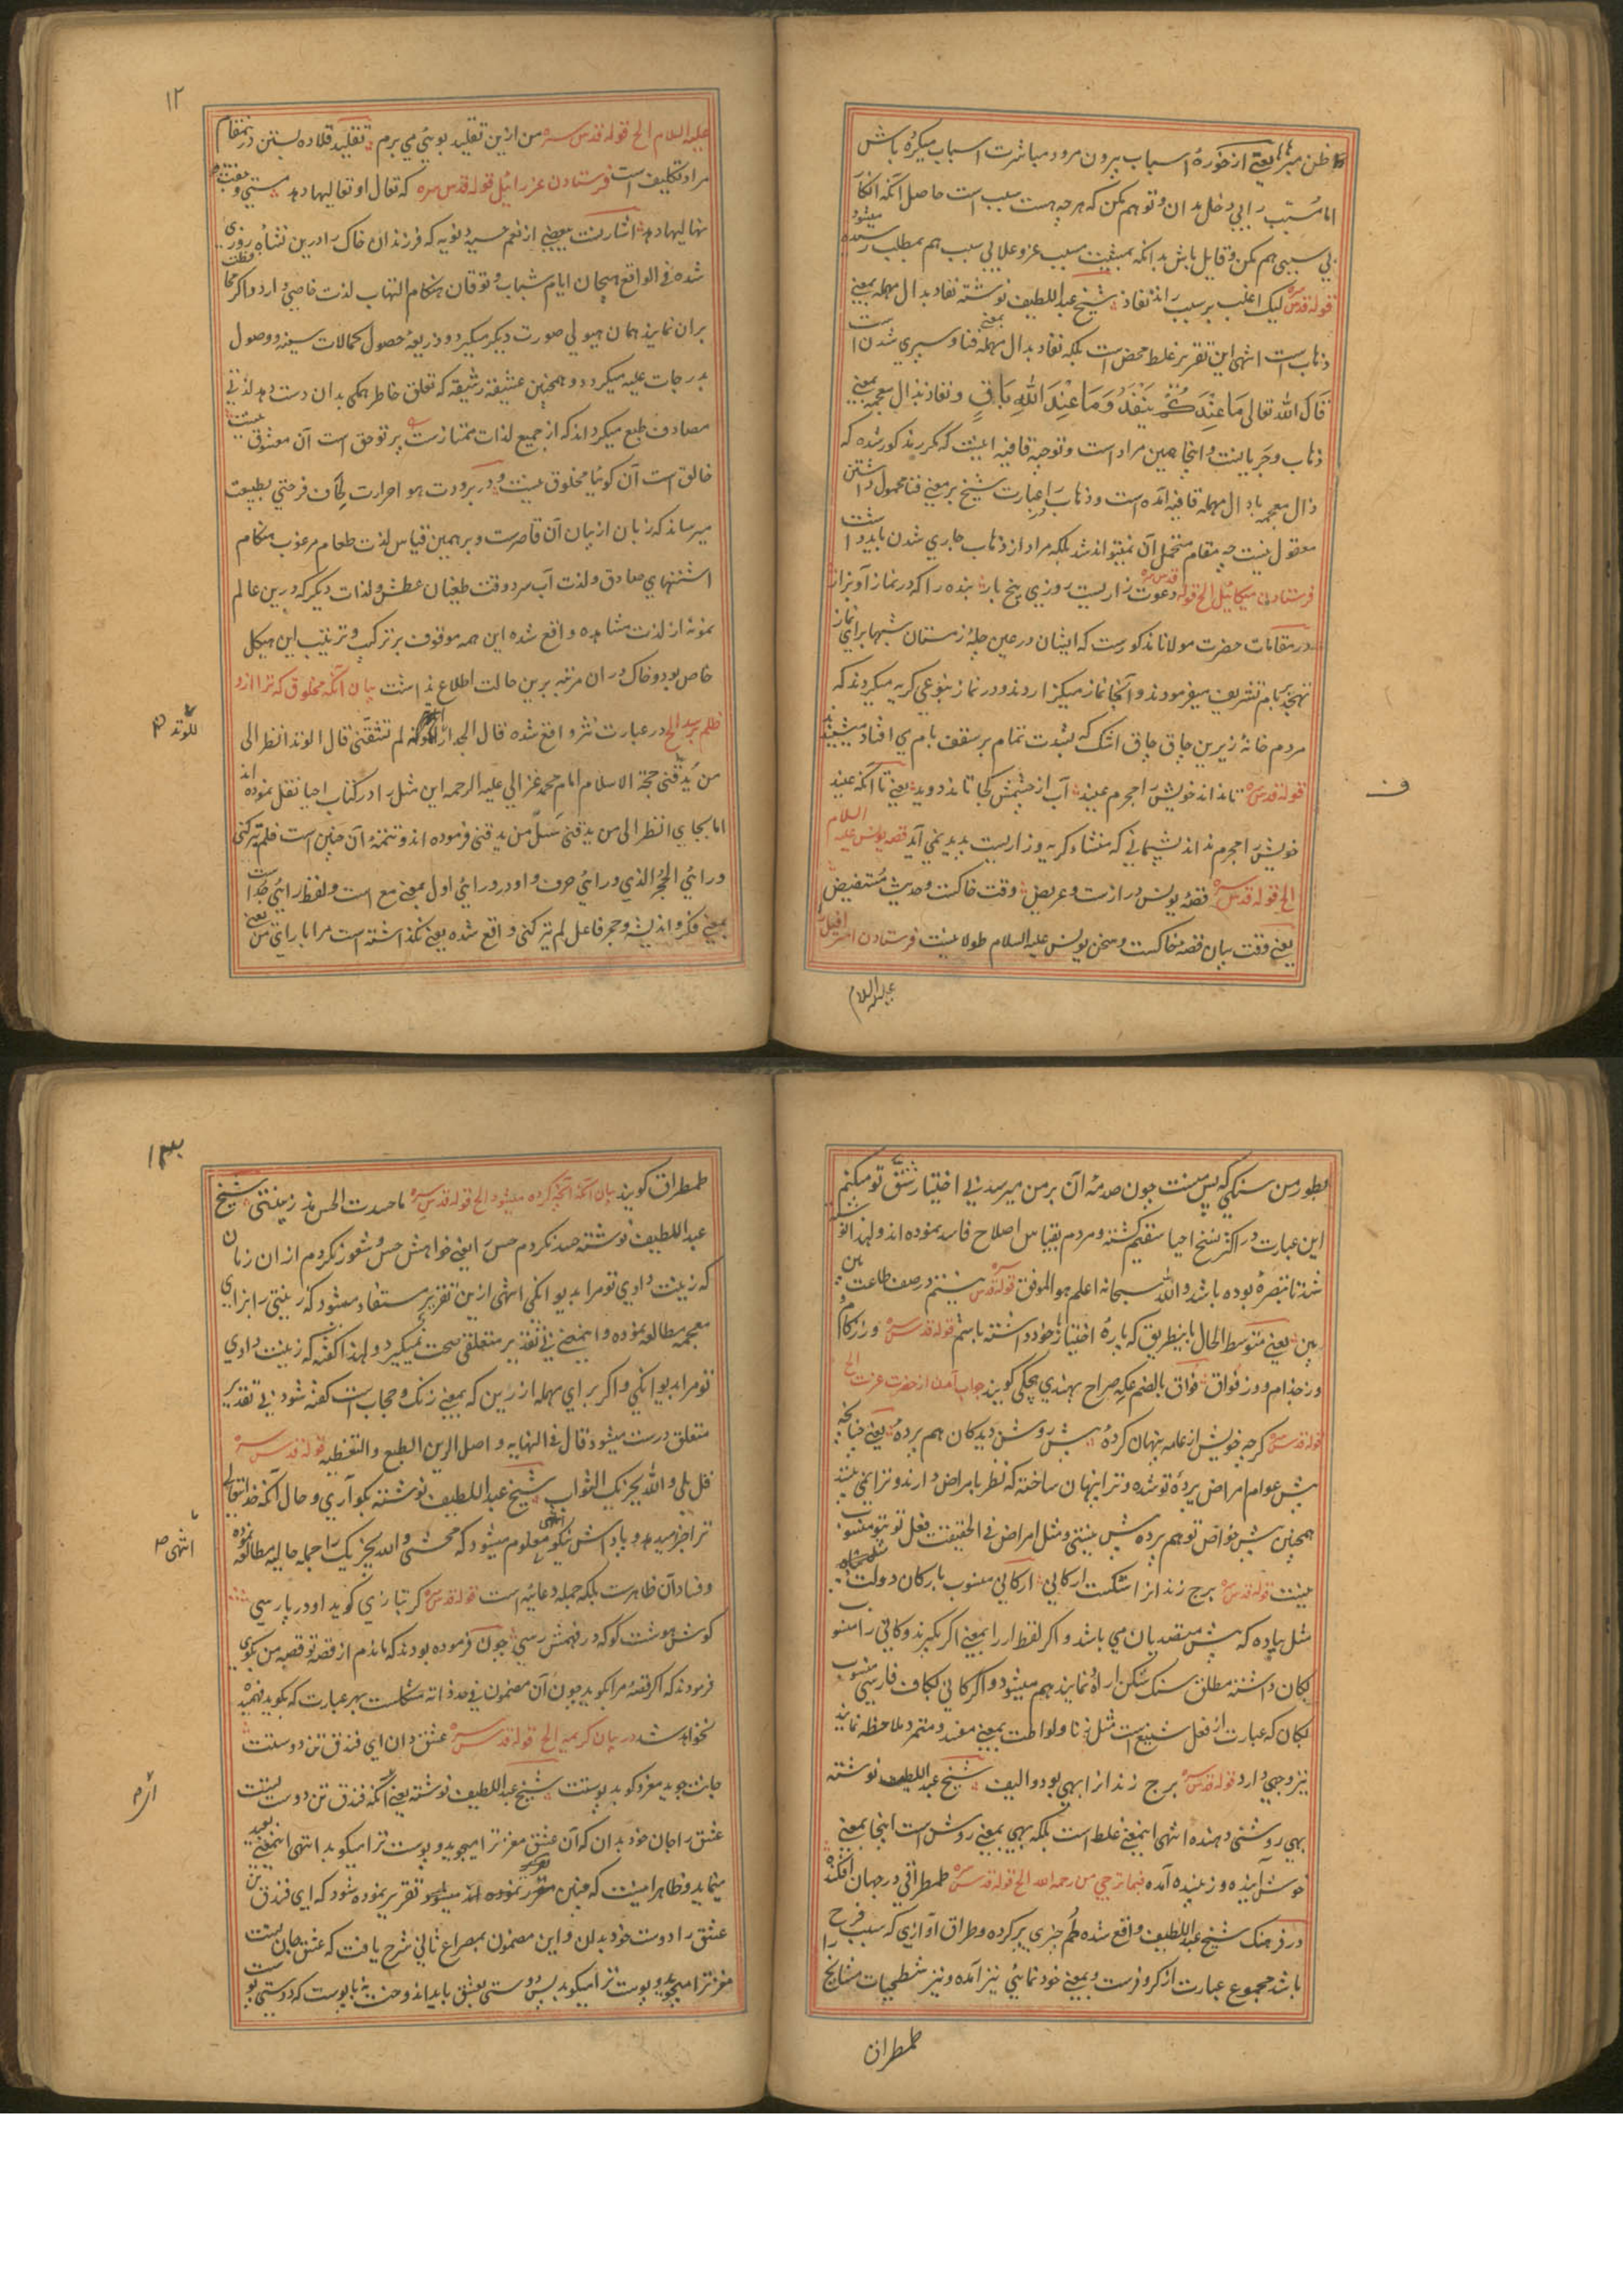 ظن مبر یعنے از خورۀ اسباب بیرون مرو و مباشرت اسباب میکرده باش
اما مسبب را بی دخل بدان و توهم مکن که هرچه هست سبب است حاصل آنکه انکار
بی سببی هم مکن و قایل باش بدانکه بمشیت مسبب عز و علا بی سبب هم بمطلب رسیده میشود
قوله قدس سره لیک اغلب بر سبب راند نفاذ شیخ عبد اللطیف نوشته نفاد بدال مهمله بمعنے
ذهاب است انتهی این تقریر غلط محض است بلکه نفاد بدال مهمله بمعنے فنا و سپری شدن است
قال الله تعالی مَا عِنْدَكُمْ يَنْفَدُ وَمَا عِنْدَ اللهِ بَاقٍ و نفاذ بذال معجمه بمعنے
ذهاب و جریانست و اینجا همین مراد است و توجیه قافیه اینست که مکرر مذکور شده که
ذال معجمه با دال مهمله قافیه آمده است و ذهاب را در عبارت شیخ بر معنے فنا محمول داشتن
معقول نیست چه مقام متحمل آن نمیتواند شد بلکه مراد از ذهاب جاری شدن باید داشت
فرستادن میکائیل الخ قوله قدس سره دعوت زاریست روزی پنج بار بنده را که در نماز آ و بزار
در مقامات حضرت مولانا مذکورست که ایشان در عین چلۀ زمستان شبها برای نماز
تهجد بر بام تشریف میفرمودند و آنجا نماز میکزاردند و در نماز بنوعی کریه میکردند که
مردم خانۀ زیرین چاق چاق اشک که بشدت تمام بر سقف بام می افتاد میشنیدند
قوله قدس سره تا نداند خویش را مجرم عنید آب از چشمش کجا تاند دوید یعنے تا آنکه عنید
خویش را مجرم نداند پشیمانی که منشاء کریه و زاریست پدید نمی آید قصه یونس علیه السلام
الخ قوله قدس سره قصۀ یونس درازست و عریض وقت خاکست و حدیث مستفیض
یعنے وقت بیان قصه خاکست و سخن یونس علیه السلام طولانیست فرستادن اسرافیل را
علیه السلام
ف
۱۲
علیه السلام الخ قوله قدس سره من ازین تقلید بوئی می برم تقلید قلاده بستن در ینمقام
مراد تکلیف است فرستادن عزرائیل قوله قدس سره که تعال او تعالیها دهد مستی و جفت
نهالیها دهد اشارتست ببعضے از نعم حسیه دنویه که فرزندان خاک را درین نشاه روزی
شده فی الواقع هیجان ایام شباب و توقان هنکام التهاب لذت خاصی دارد و اکر محافظت
بران نمایند همان هیولی صورت دیکر میکیرد و ذریعۀ حصول کمالات سنیه و وصول
بدرجات علیه میکردد و همچنین عشیقه رشیقه که تعلق خاطر همکی بدان دست دهد لذتی
مصادف طبع میکرداند که از جمیع لذات ممتازست پر توحق است آن معشوق نیست
خالق است آن کوئیا مخلوق نیست و در برودت هوا حرارت لحاف فرحتی بطبیعت
میرساند که زبان از بیان آن قاصرست و بر همین قیاس لذت طعام مرغوب هنکام
اشتهای صادق و لذت آب سرد وقت طغیان عطش و لذات دیکر که درین عالم
نمونه از لذت مشاهده واقع شده این همه موقوف بر ترکیب و ترتیب این هیکل
خاص بود و خاک در ان مرتبه برین حالت اطلاع نداشت بیان آنکه مخلوق که ترا ازو
ظلم رسد الخ در عبارت نثر واقع شده قال الجدار للوتد لم تشقنی قال الوتد انظر الی
من یدقنی حجة الاسلام امام محمد غزالی علیه الرحمه این مثل را در کتاب احیا نقل نموده اند
اما بجای انظر الی من یدقنی سل من یدقنی فرموده اند و تتمۀ آن چنین است فلم یترکنی
ورائی الحجر الذی ورائی حرف واو در ورائی اول بمعنے مع است و لفظ رائی جداست
بمعنے فکر و اندیشه و حجر فاعل لم یترکنی واقع شده یعنے نکذاشته است مرا با رای من یعنے
للوتد م
بطور من سنکی که پس منست چون صدمۀ آن بر من میرسد بی اختیار شق تو میکنم
این عبارت در اکثر نسخ احیا سقیم کشته و مردم بقیاس اصلاح فاسد نموده اند و لهذا نوشته
شد تا تبصره بوده باشد والله سبحانه اعلم هو الموفق قوله قدس سره نیستم در صف طاعت بین
بین یعنے متوسط الحال باینطریق که پارۀ اختیار خود داشته باشم قوله قدس سره وز زکام
وز جذام و وز فواق فواق بالضم عکه صراح بهندی هچکی کویند جواب آمدن از حضرت عزت الخ
قوله قدس سره کرچه خویش از عامه پنهان کردۀ پیش روشن دیدکان هم پردۀ یعنے چنانچه
پیش عوام امراض پردۀ تو شده و ترا پنهان ساخته که نظر بامراض دارند و ترا نمی بینند
همچنین پیش خواص تو هم پرده پیش نیستی و مثل امراض فی الحقیقت فعل تو بتو منسوب
نیست قوله قدس سره برج زندانرا شکست ارکانی ارکانی منسوب بارکان دولت
مثل پیاده که پیش متصدیان می باشد و اکر لفظ ار را بمعنے اکر بکیرند و کانی را منسوب
بکان داشته مطلق سنک شکن اراده نمایند هم میشود و اکر کانی بکاف فارسی منسوب
بکان که عبارت از فعل شنیع است مثل زنا و لواطت بمعنے مفسد و متمرد ملاحظه نمایند
نیز وجهی دارد قوله قدس سره برج زندان را بهی بود و الیف شیخ عبد اللطیف نوشته
بهی روشنی دهنده انتهی اینمعنے غلط است بلکه بهی بمعنے روشن است اینجا بمعنے
خوش آینده و زیبنده آمده فیما یرجی من رحمه الله الخ قوله قدس سره طمطراقی در جهان افکنده
در فرهنک شیخ عبد اللطیف واقع شده طم چیزی پر کرده و طراق آوازی که سبب فرح
باشد مجموع عبارت از کر و فرست و بمعنے خود نمائی نیز آمده و نیز شطحیات مشایخ را
طمطراق
۱۳
طمطراق کویند بیان آنکه آنچه کرده میشود الخ قوله قدس سره ما حسدت الحس مذ زینتنی شیخ
عبد اللطیف نوشته حسد نکردم حس را یعنے خواهش حس و شعور نکردم از ان زمان
که زینت دادی تو مرا بدیوانکی انتهی ازین تقریر مستفاد میشود که زینتنی را بزای
معجمه مطالعه نموده و اینمعنے بی تقدیر متعلقی صحت نمیکیرد و لهذا کفته که زینت دادی
تو مرا بدیوانکی و اکر برای مهمله از رین که بمعنے زنک و حجاب است کفته شود بی تقدیر
متعلق درست میشود قال فی النهایه و اصل الرین الطبع و التغطیه قوله قدس سره
قل بلی والله یجزیک الثواب شیخ عبد اللطیف نوشته بکو آری و حال آنکه خدا تعالی
ترا جزا میدهد و پاداش نیکو انتهی معلوم میشود که محشی والله یجزیک را جمله حالیه مطالعه نموده
و فساد آن ظاهرست بلکه جمله دعائیه است قوله قدس سره کر بتازی کوید او در پارسی
کوش و هوشت کو که در فهمش رسی چون فرموده بودند که ماندم از قصه تو قصه من بکوی
فرمودند که اکر قصۀ مرا بکوید چون آن مضمون فی حد ذاته مشکلست بهر عبارت که بکوید فهمیده
نخواهد شد در بیان کریمه الخ قوله قدس سره عشق دان ای فندق تن دوستت
جانت جوید مغز و کوید پوستت شیخ عبد اللطیف نوشته یعنے آنکه فندق تن دوست نیست
عشق را جان خود بدان که آن عشق مغز ترا میجوید و پوست ترا میکوبد انتهی اینمعنے بعید
مینماید و ظاهرا نیست که چنین تقریر نموده شود که ای فندق تن
عشق را دوست خود بدان و این مضمون بمصراع ثانی شرح یافت که عشق جان نیست
مغز ترا میجوید و پوست ترا میکوبد پس دوستی بعشق باید اندوخت نه با پوست که دوستی تو
انتهی م